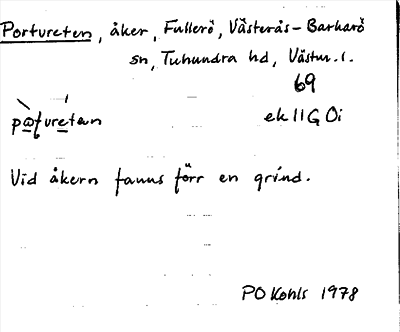 Portureten, åker, Fullerö, Västerås-Barkarö
sn, Tuhundra hd, Västm. l.
69
ek 11G 0i
Vid åkern fanns förr en grind.
PO Kohls 1978